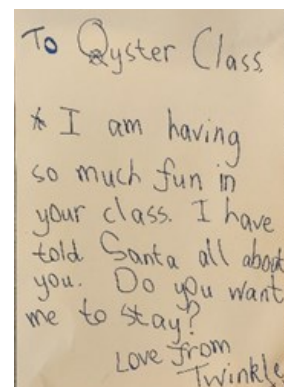 To Oyster Class,
* I am having
so much fun in
your class. I have
told Santa all about
you. Do you want
me to stay?
Love from
Twinkle